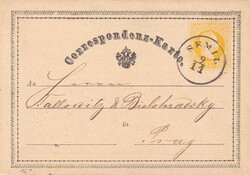 Correspondenz-Karte.
SEMIL
9
11
An Herrn
Fallowitz & Bielohradsky
in
Prag